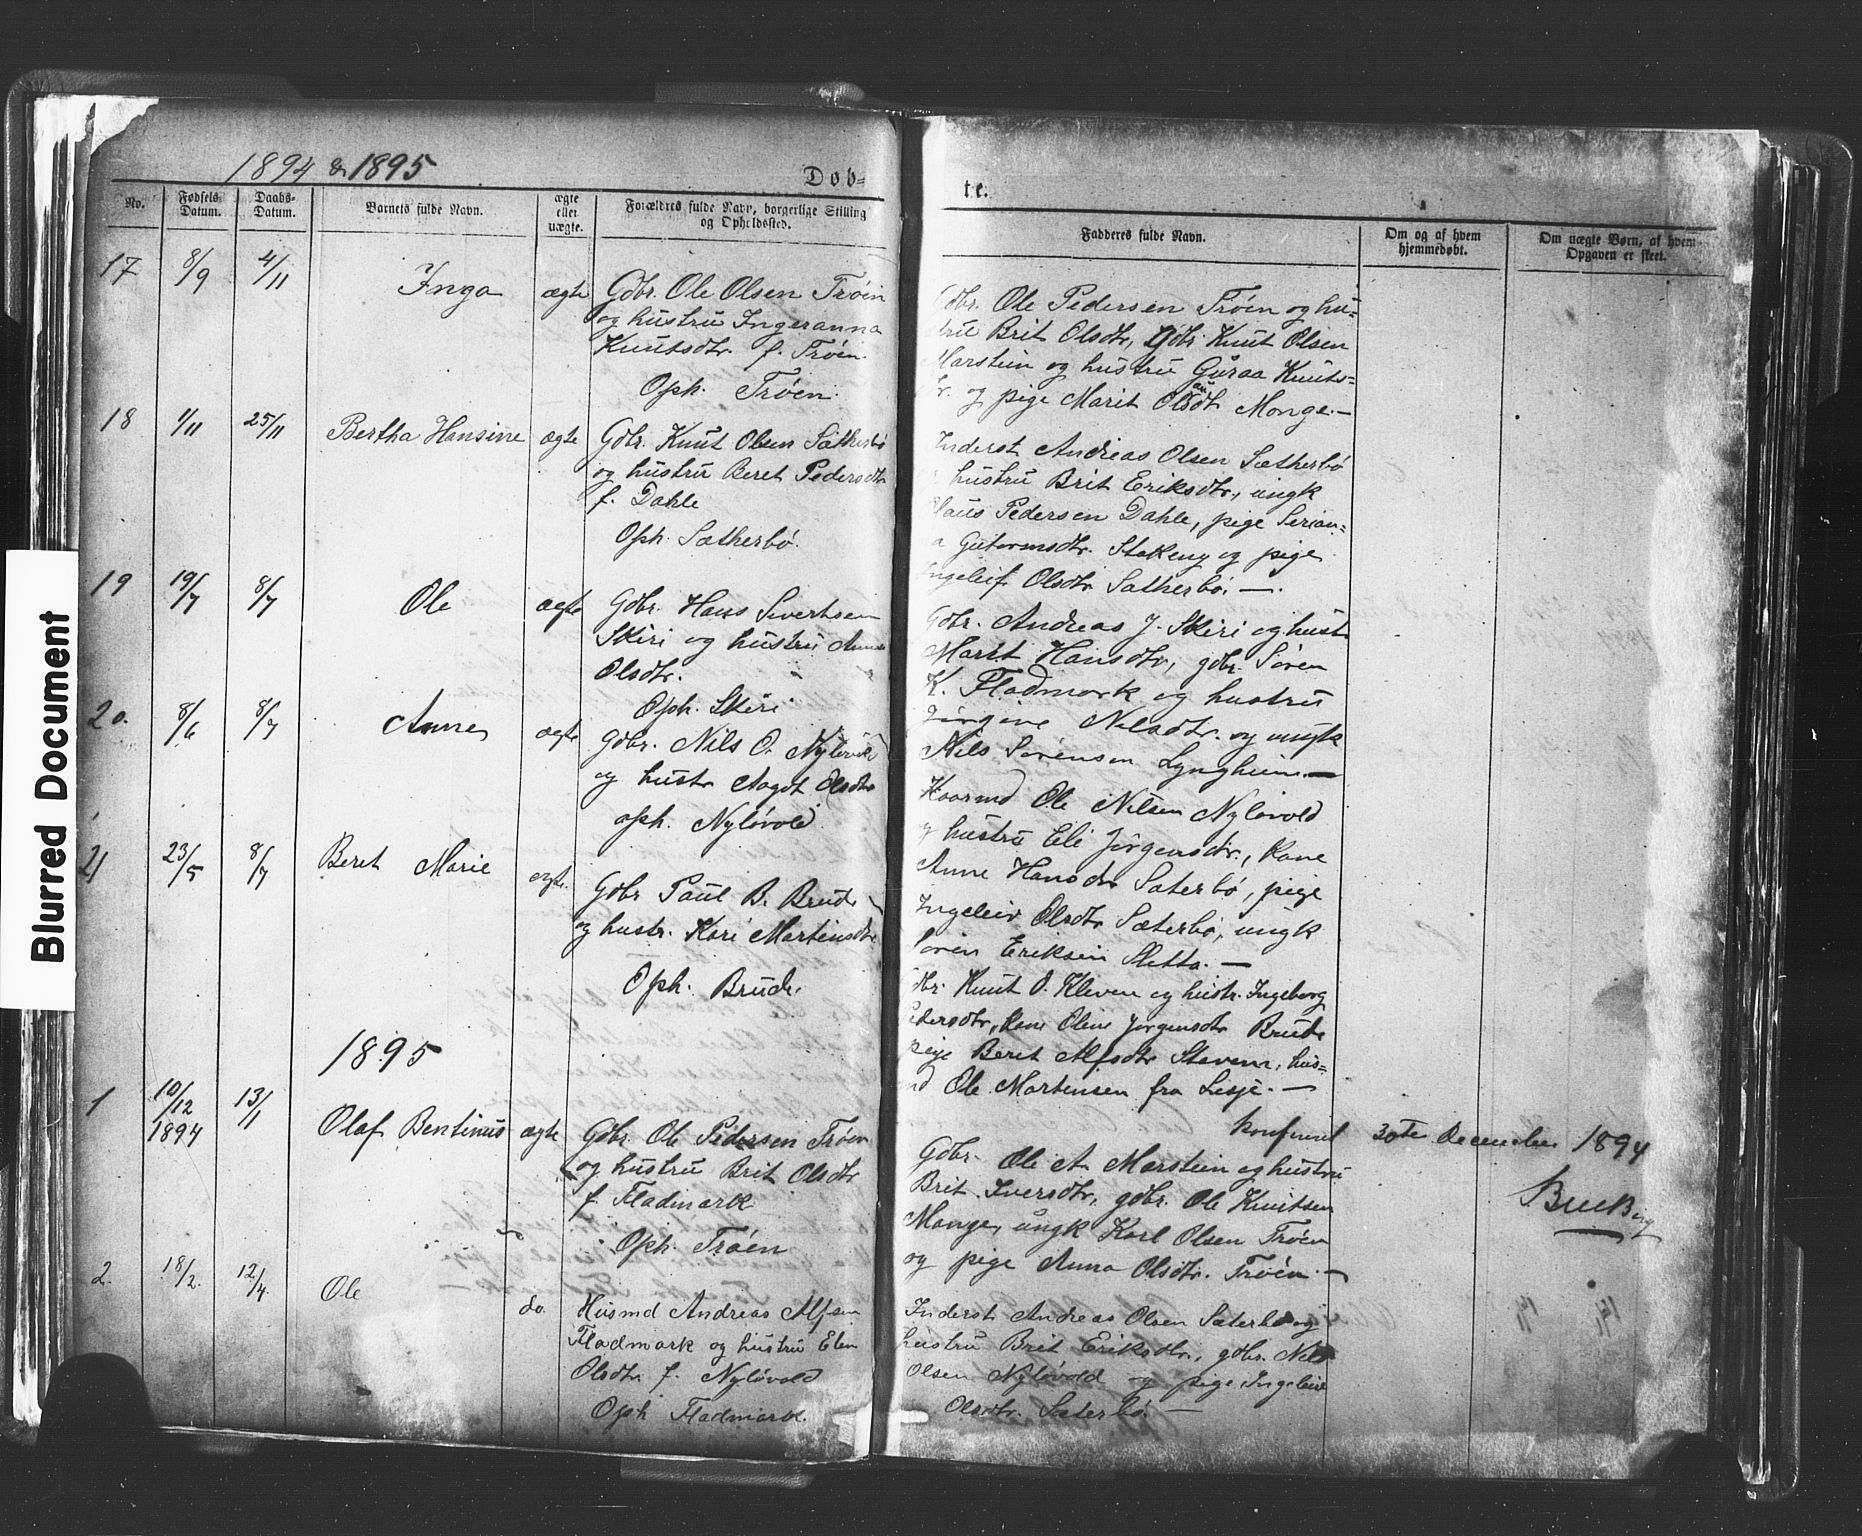 Blurred Document
1894 & 1895
Døb-
te.
No.
Fødsels-
Datum.
Daabs-
Datum.
Barnets fulde Navn.
ægte
eller
uægte.
Forældres fulde Navn, borgerlige Stilling
og Opholdssted.
Fadderes fulde Navn.
Om og af hvem
hjemmedøbt.
Om uægte Børn, af hvem
Opgaven er skeet.
17 8/9 4/11 Inga ægte
Gdbr. Ole Olsen Trøen
og hustru Ingeranna
Knutsdtr. f. Trøen.
Oph. Trøen.
Gdbr. Ole Pedersen Trøen og hu-
stru Brit Olsdtr, Gdbr Knut Olsen
Marstein og hustru Guraa Knuts-
dtr. og pige Marit Olsdtr Monge.—
18 1/11 25/11 Bertha Hansine ægte
Gdbr. Knut Olsen Sætherbø
og hustru Beret Pedersdtr
f. Dahle
Oph. Sætherbø.
Inderst Andreas Olsen Sætherbø
hustru Brit Eriksdtr., ungk
Claus Pedersen Dahle, pige Serian-
a Gutormsdtr. Stokeng og pige
Ingeleif Olsdtr Sætherbø. —.
19 19/7 8/7 Ole ægte
Gdbr. Hans Sivertsen
Skiri og hustru Anne
Olsdtr.
Oph. Skiri
Gdbr. Andreas J. Skiri og hust
Marit Hansdtr, gdbr. Søren
K. Fladmark og hustru
Jørgine Nilsdtr. og ungk
Nils Sørensen Lyngheim.—
20. 8/6 8/7 Anne ægte
Gdbr. Nils O. Nyløvold
og hustr Aagot Olsdtr
oph. Nyløvold
Kaarmd Ole Nilsen Nyløvold
og hustru Eli Jørgensdtr., kone
Anne Hansdtr Sæterbø, pige
Ingeleiv Olsdtr Sæterbø, ungk
Søren Eriksen Sletta. —
21 23/5 8/7 Beret Marie ægte.
Gdbr Paul B. Brude
og hustr. Kari Martinsdtr
Oph. Brude.
Gdbr. Knut O. Kleven og hustr. Ingeborg
Pedersdtr, kone Oline Jørgensdtr Brude
pige Beret Alfsdtr Stavem, hus-
md Ole Mortensen fra Lesje. —
1895
1 10/12 1894 13/1 Olaf Bentinus ægte
Gdbr. Ole Pedersen Trøen
og hustru Brit Olsdtr
f Fladmark
Oph. Trøen
30te December 1894
Gdbr. Ole A. Marstein og hustru
Brit Iversdtr, gdbr. Ole Knutsen
Monge, ungk Karl Olsen Trøen
og pige Anna Olsdtr. Trøen.—
2. 18/2. 12/4. Ole do.
Husmd Andreas Alfsen
Fladmark og hustru Elen
Olsdtr f. Nyløvold
Oph Fladmark.
Inderst Andreas Olsen Sæterbø og
hustru Brit Eriksdtr., gdbr. Nils
Olsen Nyløvold og pige Ingeleiv
Olsdtr. Sæterbø. —